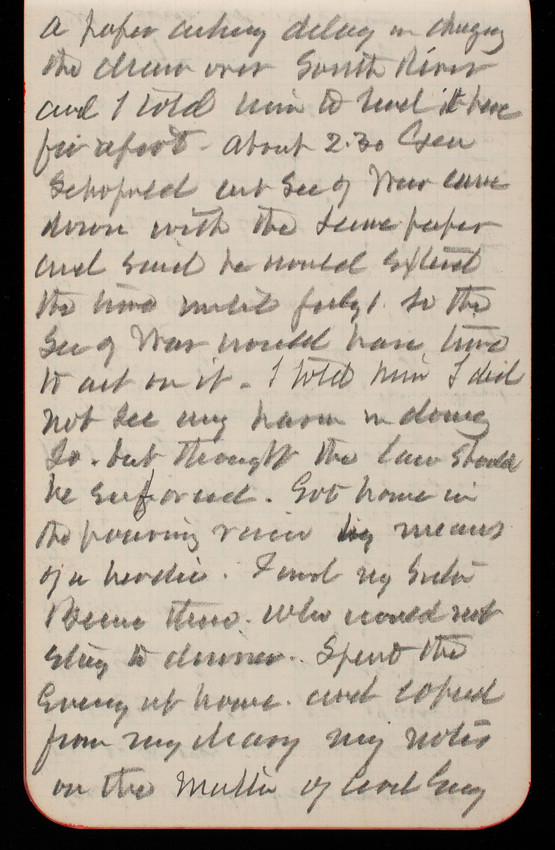 a paper asking delay in changing
the draw over South River
and I told him to send it here
for a report. About 2.30 Gen
Schofield act Sec of War came
down with the same paper
and said he would extend
the time until July 1. so the
Sec of War would have time
to act on it. I told him I did
not see any harm in doing
So. but thought the law should
be enforced. Got home in
the pouring rain by means
of a herdic. Found my Sister
there. who would not
stay to dinner. Spent the
Evening at home. and copied
from my diary my notes
on the Matter of